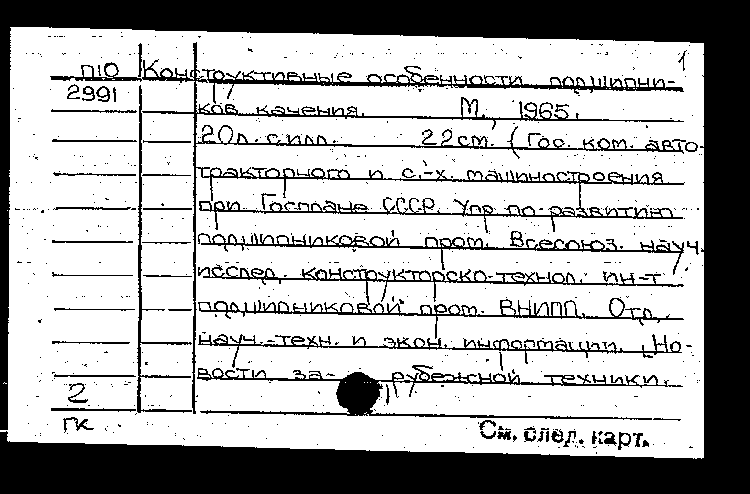 1
П10 Конструктивные особенности подшипни-
2991 ков качения. М., 1965.
20л. с илл. 22см. (Гос. ком. авто-
тракторного и с.-х. машиностроения
при Госплане СССР. Упр по развитию
подшипниковой пром. Всесоюз. науч.
исслед. конструкторско-технол. ин-т
подшипниковой пром. ВНИПП. Отд.
науч.-техн. и экон. информации. Но-
вости за- рубежной техники.
2
ГК
См. след. карт.